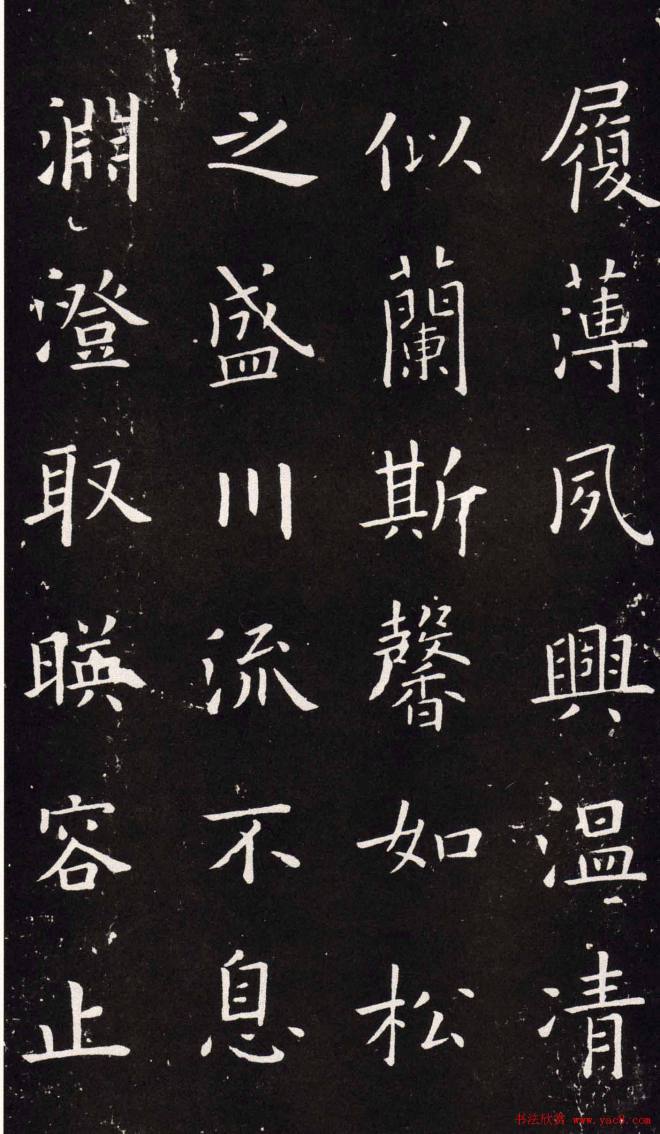 履薄夙興温凊
似蘭斯馨如松
之盛川流不息
淵澄取暎容止
书法欣赏 www.yac8.com